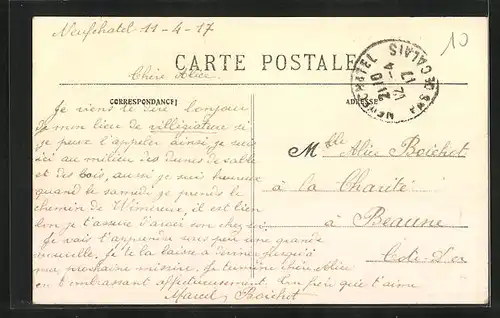 Neufchatel 11-4-17
10
CARTE POSTALE
Chère Alice
NEUFCHATEL PAS DE CALAIS
21 10
12 - 4
17
CORRESPONDANCE
ADRESSE
Je viens te dire bonjour
de mon lieu de villégiature si
je peux l'appeler ainsi je suis
ici au milieu des dunes de sable
et des bois, aussi je suis heureux
quand le samedi je prends le
chemin de Wimereux, il est bien
bon je t'assure d'avoir son chez soi
Je vais t'apprendre sans peu une grande
nouvelle, je te la laisse à deviner jusqu'à
ma prochaine missive. Je termine chère Alice
en t'embrassant affectueusement. Ton frère que t'aime
Marcel Boichot
Mlle Alice Boichot
à la Charité
à Beaune
Côte-d'Or